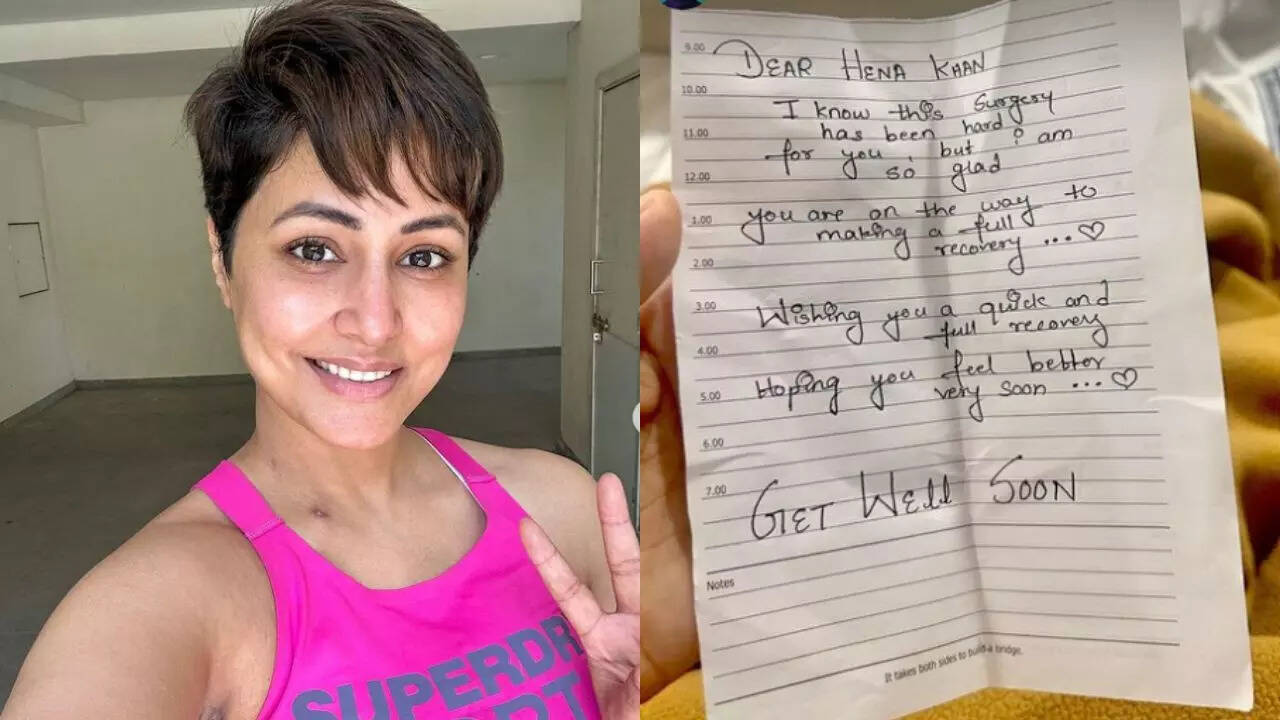 SUPERDR
9.00 DEAR HENA KHAN
10.00 I know this surgery
has been hard
11.00 for you, but i am
so glad
12.00
1.00 you are on the way to
making a full
recovery ... ♡
2.00
3.00 Wishing you a quick and
full recovery
4.00
5.00 Hoping you feel better
very soon ... ♡
6.00
7.00 GET WELL SOON
Notes
It takes both sides to build a bridge.